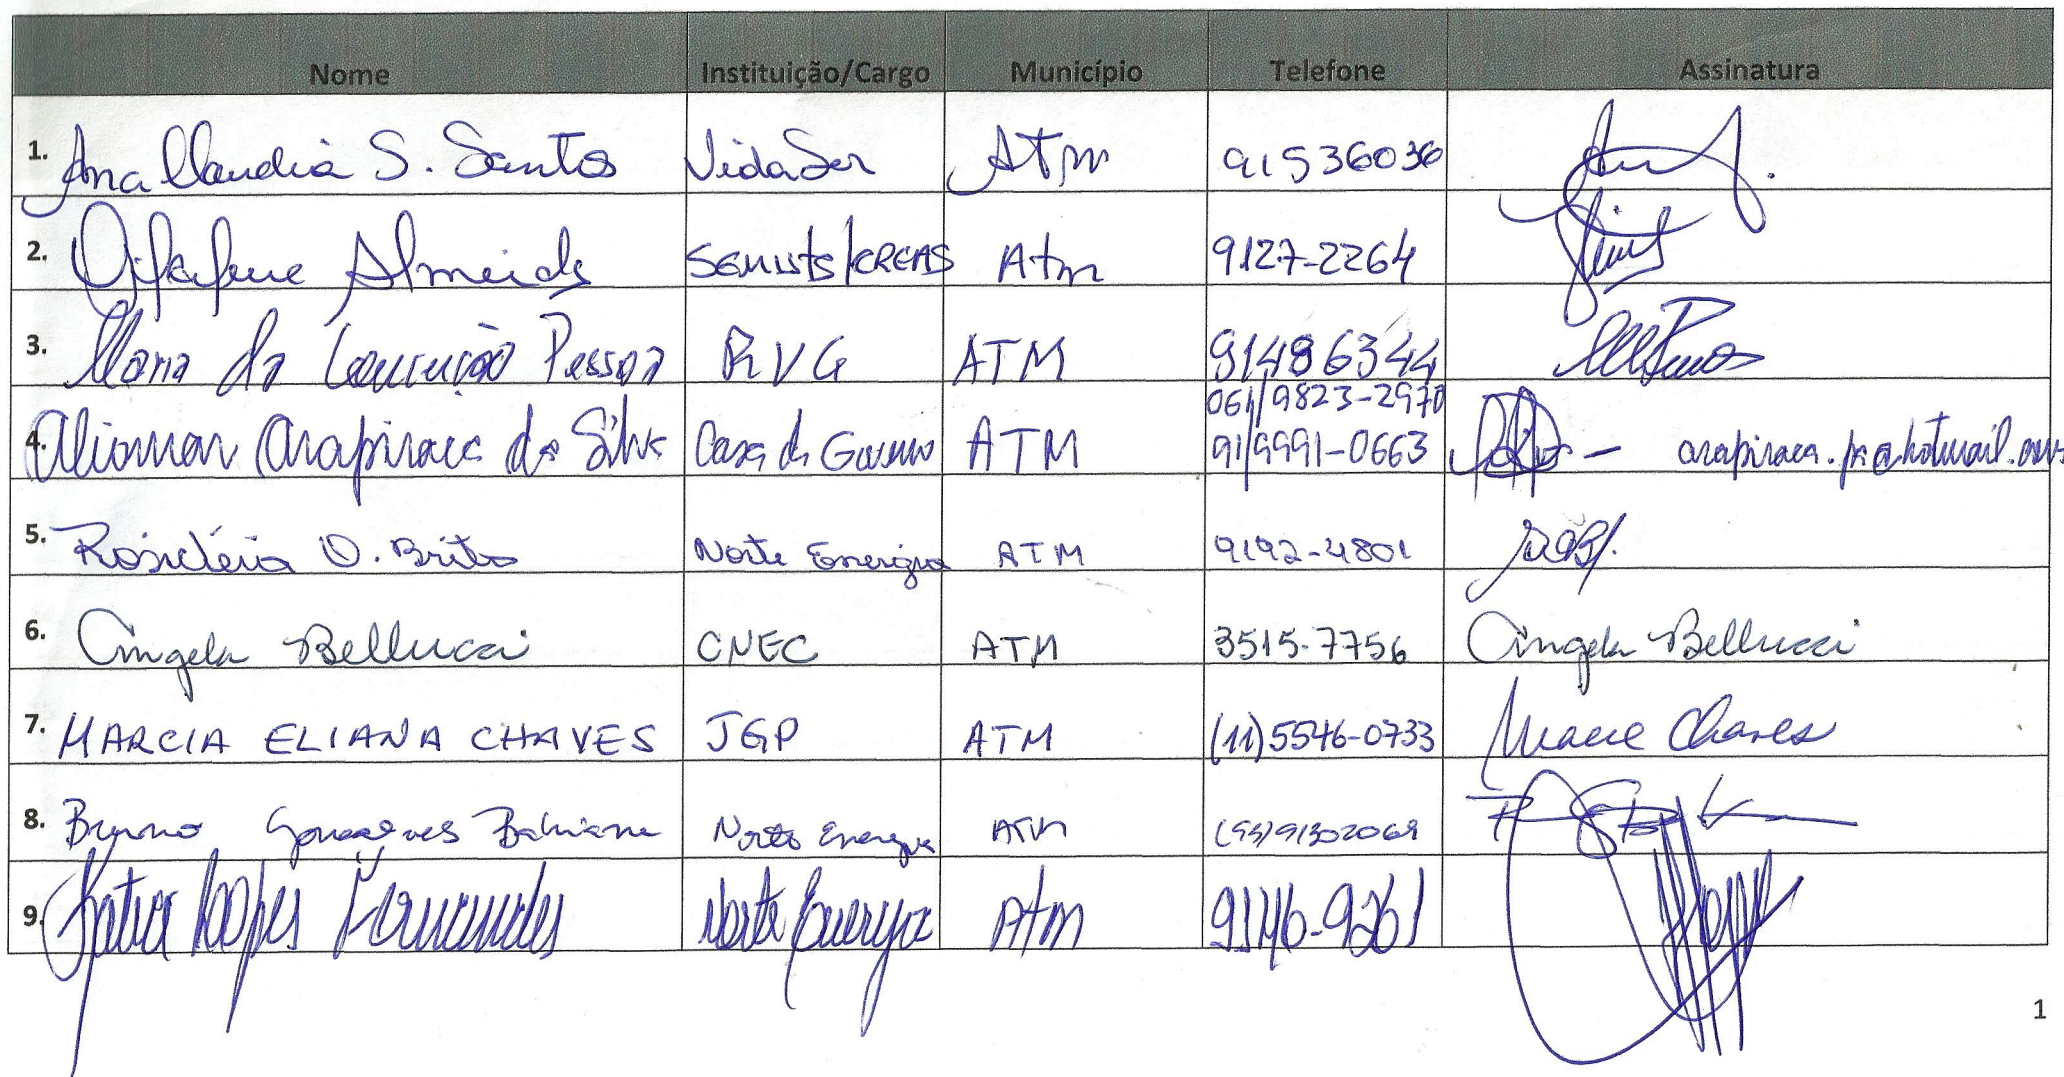 Nome Instituição/Cargo Município Telefone Assinatura
1. Ana Claudia S. Santos VidaSer Atm 91536036
2. Almeida SEMUTS/CREAS Atm 9127-2264
3. Maria da Conceição Pessoa RVG ATM 91486344
061/9823-2970
4. Aliomar Arapiraca da Silva Casa de Governo ATM 91/9991-0663 - arapiraca.pa@hotmail.com
5. Rosicléria O. Brito Norte Energia ATM 9192-4801
6. Angela Bellucci CNEC ATM 3515-7756 Angela Bellucci
7. MARCIA ELIANA CHAVES JGP ATM (11)5546-0733 Chaves
8. Bruno Gonçalves Bahiana Norte Energia ATM (93)91302069
9. Katia Lopes Fernandes Norte Energia Atm 9146-9261
1